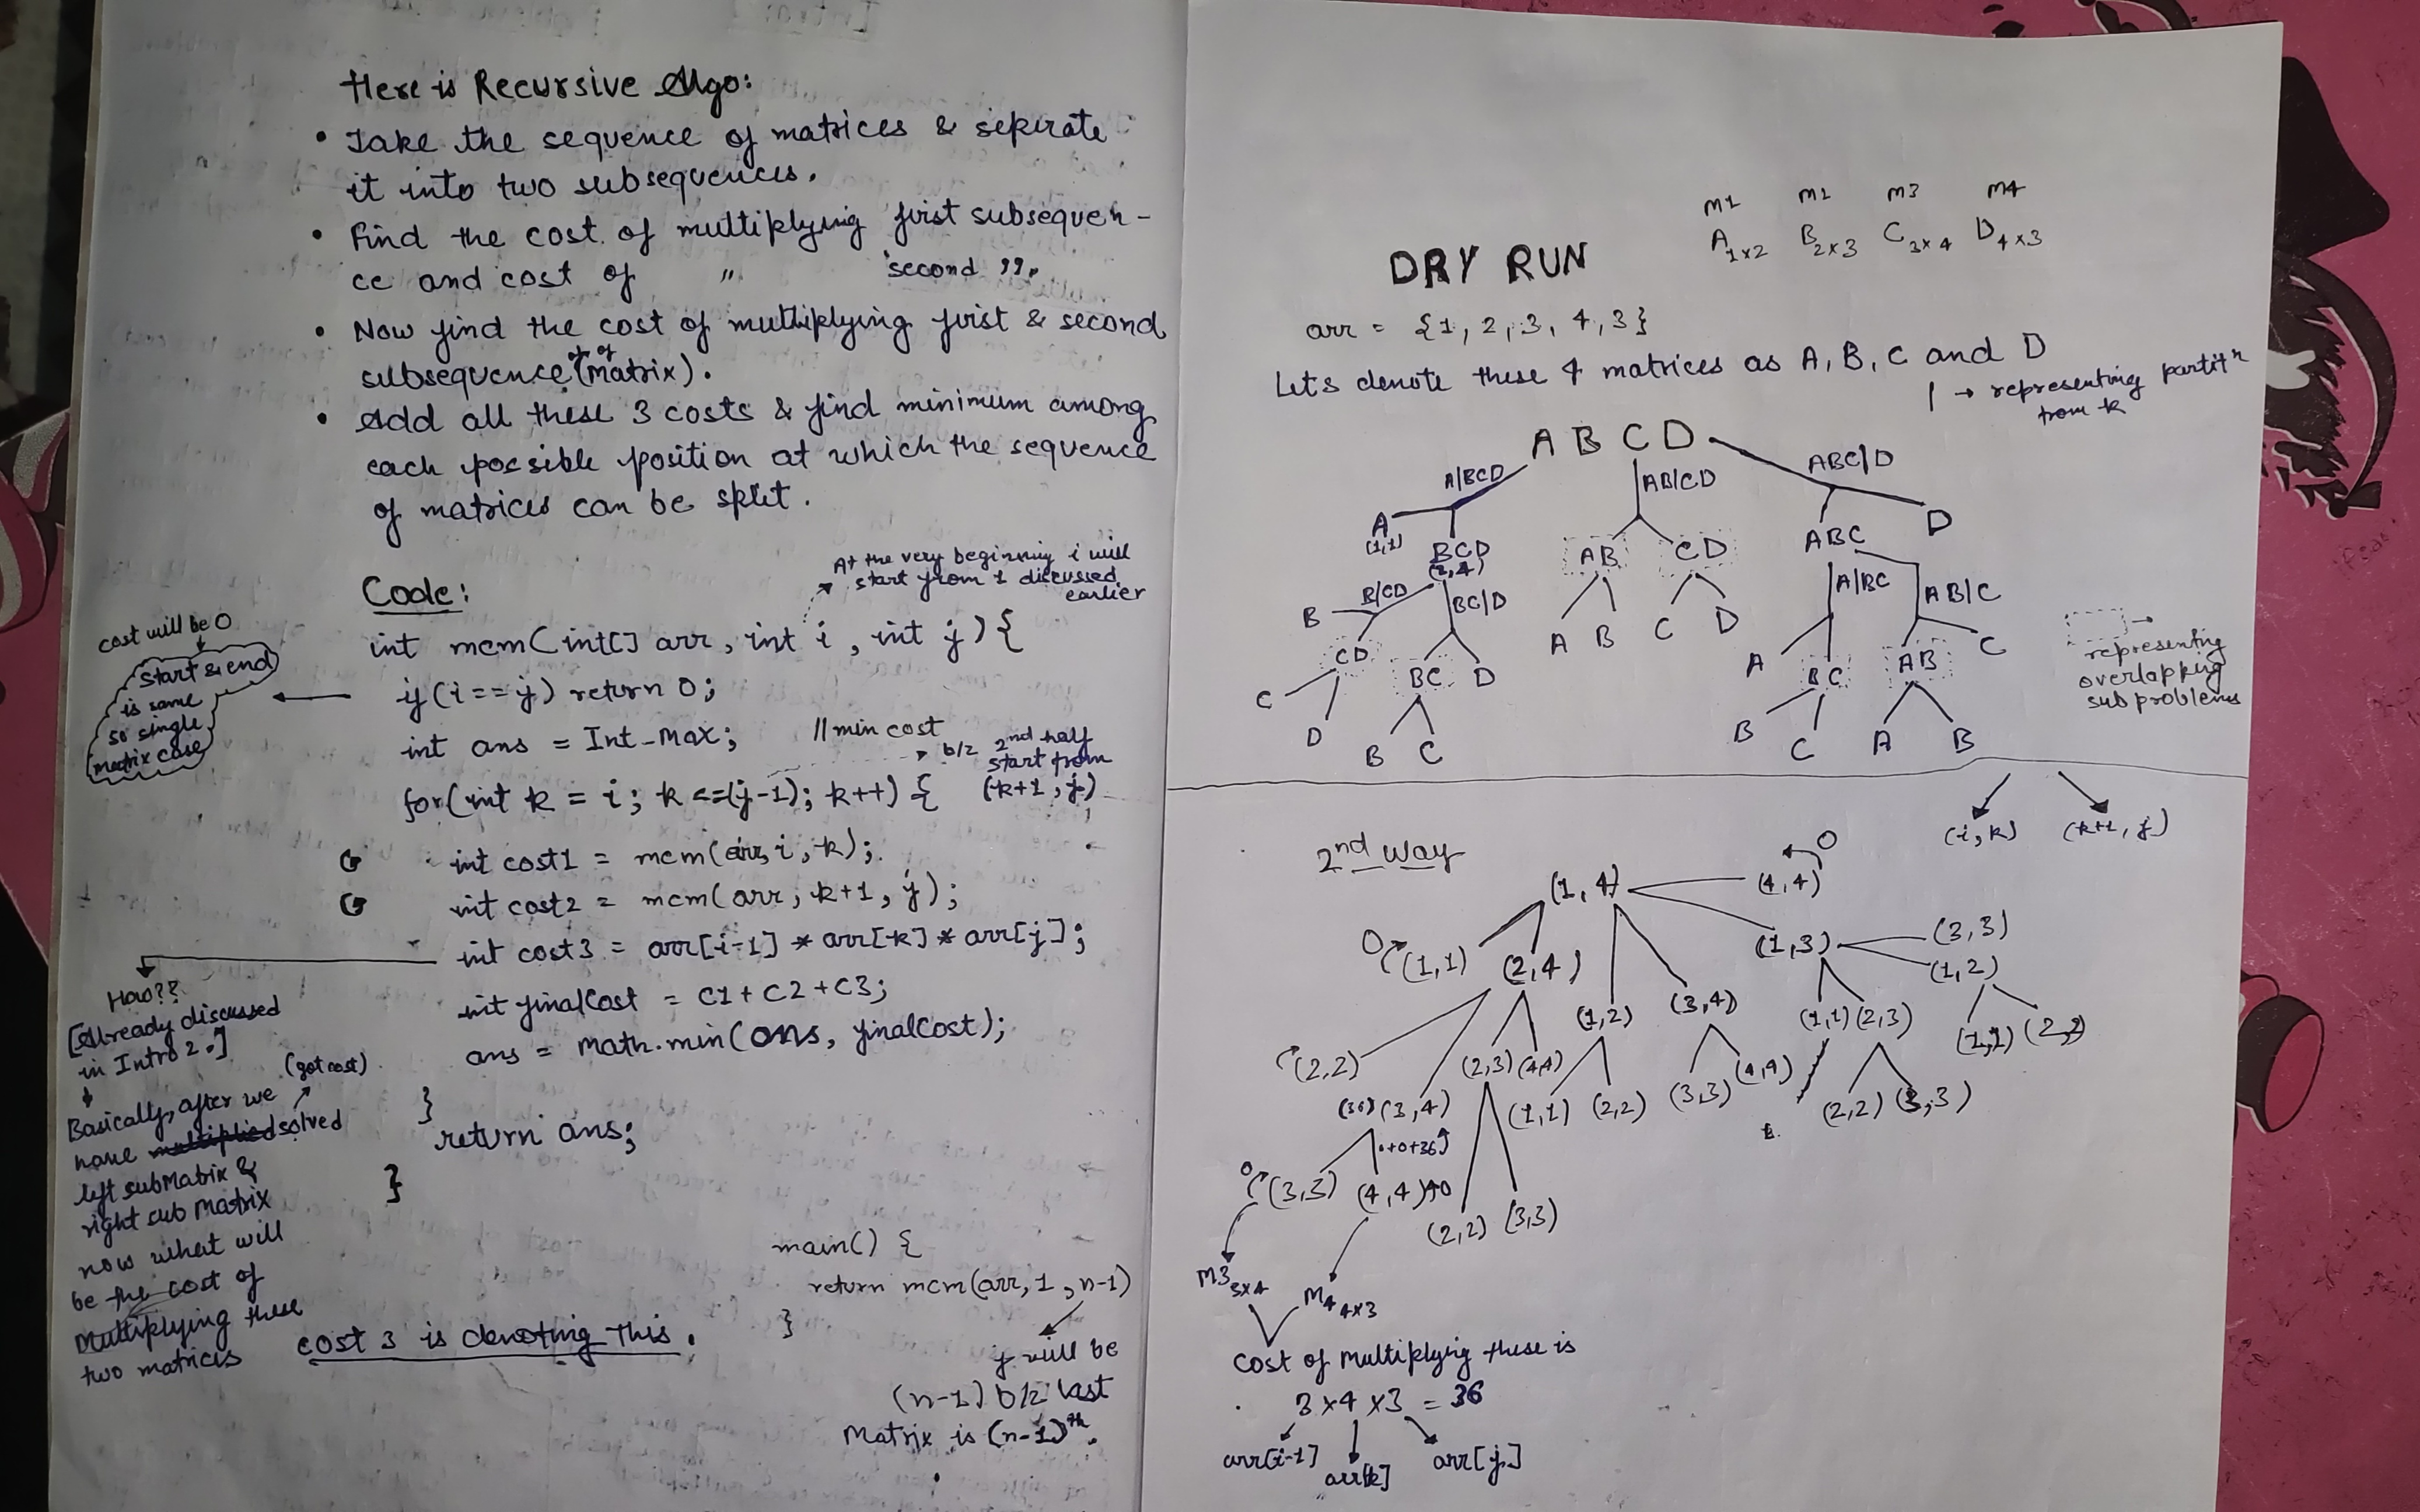 Here is Recursive Algo:
• Take the sequence of matrices & seperate
it into two subsequences.
• Find the cost of multiplying first subsequen-
ce and cost of " second ",,
• Now find the cost of multiplying first & second
subsequence (of matrix).
• Add all these 3 costs & find minimum among
each possible position at which the sequence
of matrices can be split.
At the very beginning i will
start from 1 discussed
earlier
Code:
int mcm(int[] arr, int i, int j){
cost will be 0
start & end
is same
so single
matrix case
if(i==j) return 0;
int ans = Int_Max; // min cost
b/z 2nd half
start from
(k+1, j)
for(int k = i; k <=(j-1); k++) {
int cost1 = mcm(arr, i, k);
int cost2 = mcm(arr, k+1, j);
int cost3 = arr[i-1] * arr[k] * arr[j];
int finalCost = C1 + C2 + C3;
ans = math.min(ans, finalCost);
}
return ans;
}
How??
[Already discussed
in Intro 2.]
(got cost)
Basically, after we
have solved
left subMatrix &
right sub Matrix
now what will
be the cost of
Multiplying these
two matrices
cost 3 is denoting this.
main() {
return mcm(arr, 1, n-1)
}
j will be
(n-1) b/z last
Matrix is (n-1)th.
M1 M2 M3 M4
A1x2 B2x3 C3x4 D4x3
DRY RUN
arr = {1, 2, 3, 4, 3}
Lets denote these 4 matrices as A, B, C and D
| → representing partitn
from k
A B C D
A|BCD AB|CD ABC|D
A BCD AB CD ABC D
(1,1) (2,4)
B|CD BC|D A|BC AB|C
B A B C D
CD BC D A BC AB C
C D B C B C A B
→
representing
overlapping
subproblems
(i, k) (k+1, j)
2nd Way
0
(1, 4) (4, 4)
0 (1, 1) (2, 4) (1, 3) (3, 3)
(1, 2)
(1, 2) (3, 4) (1, 1) (2, 3) (1, 1) (2, 2)
(2, 2) (2, 3) (4,4)
(36) (3, 4) (1, 1) (2, 2) (3, 3) (4, 4) (2, 2) (3, 3)
0+0+36
0 (3, 3) (4, 4) 0
(2, 2) (3, 3)
M3 3x4 M4 4x3
Cost of Multiplying these is
3 x 4 x 3 = 36
arr[i-1] arr[k] arr[j]